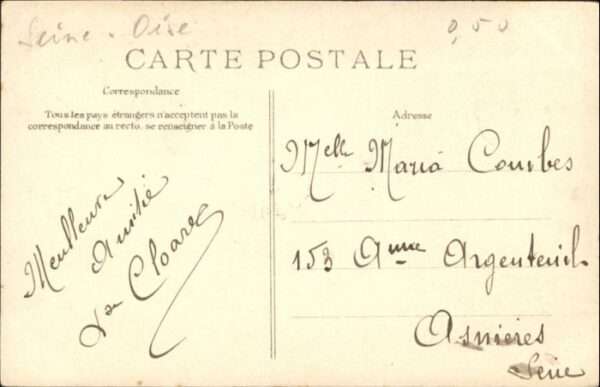 Seine - Oise
0,50
CARTE POSTALE
Correspondance
Tous les pays étrangers n'acceptent pas la
correspondance au recto, se renseigner à la Poste
Adresse
Melle Maria Combes
153 Anue Argenteuil
Asnieres
Seine
Meilleure
Amitié
Cloarec